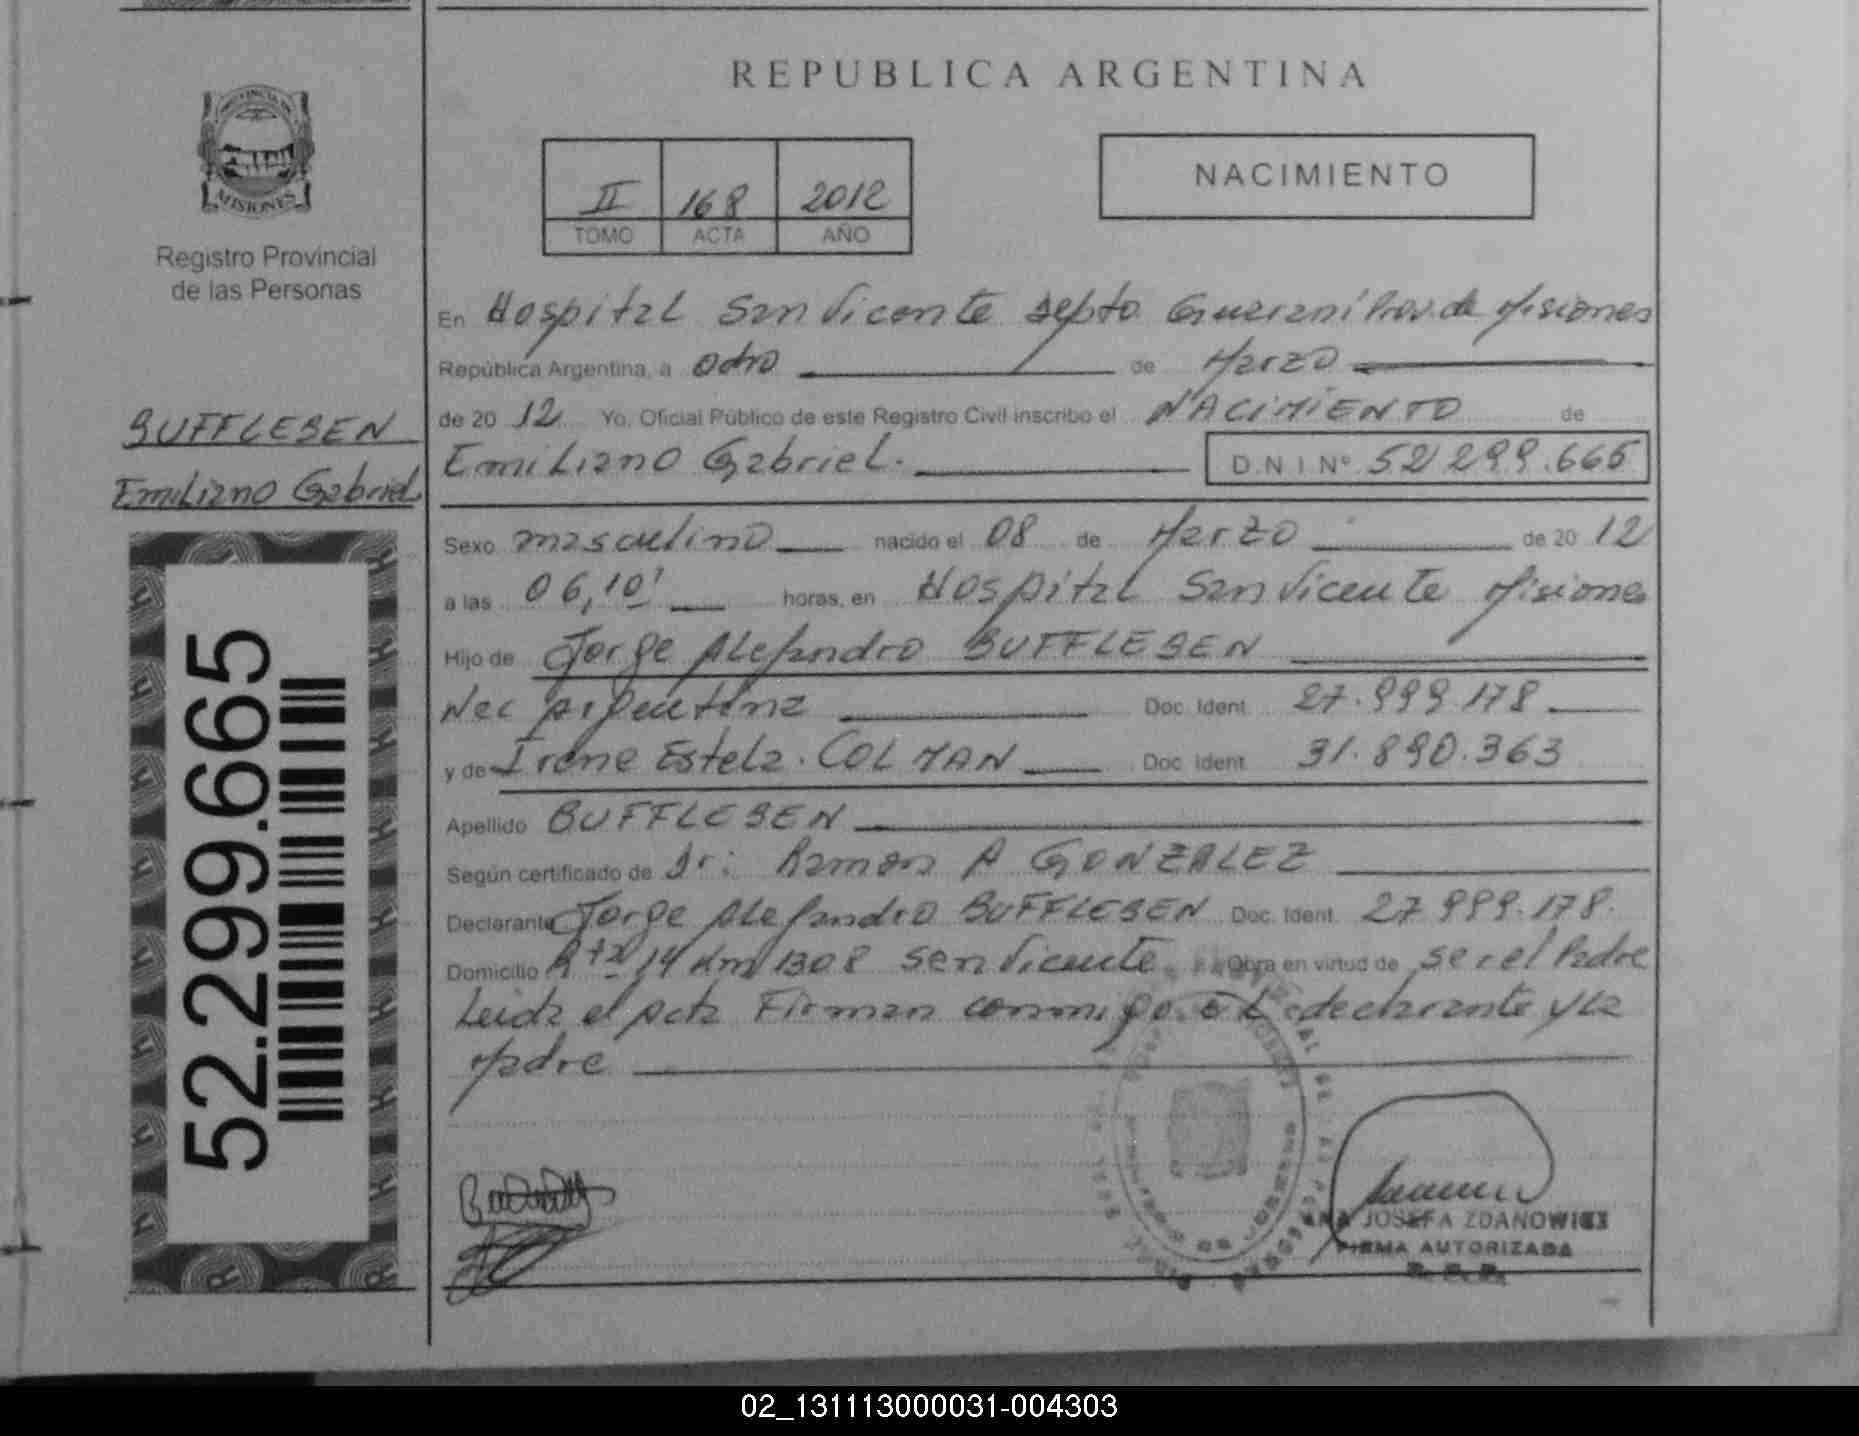 REPUBLICA ARGENTINA
PROVINCIA DE
MISIONES
Registro Provincial
de las Personas
II 168 2012
TOMO ACTA AÑO
NACIMIENTO
En Hospital San Vicente depto Guaraní Prov. de Misiones
República Argentina, a ocho de Marzo
de 20 12 Yo, Oficial Público de este Registro Civil inscribo el NACIMIENTO de
Emiliano Gabriel. D.N.I Nº 52 299.665
BUFFLEBEN
Emiliano Gabriel
52.299.665
Sexo masculino nacido el 08 de Marzo de 20 12
a las 06,10' horas, en Hospital San Vicente Misiones
Hijo de Jorge Alejandro BUFFLEBEN
Nac Argentina Doc. Ident. 27.999.178
y de Irene Estela. COLMAN Doc. Ident. 31.890.363
Apellido BUFFLEBEN
Según certificado de Dr: Ramon A GONZALEZ
Declarante Jorge Alejandro BUFFLEBEN Doc. Ident. 27 999.178.
Domicilio Rta 14 Km 1308 San Vicente Obra en virtud de ser el Padre
Leida el acta Firman conmigo el declarante y la
Madre
ANA JOSEFA ZDANOWICZ
FIRMA AUTORIZADA
02_131113000031-004303